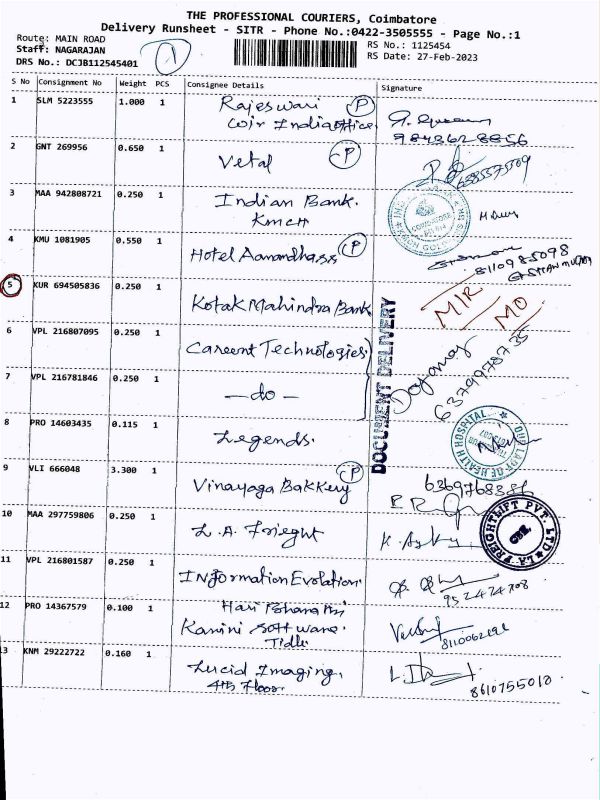 THE PROFESSIONAL COURIERS, Coimbatore
Delivery Runsheet - SITR - Phone No.:0422-3505555 - Page No.:1
Route: MAIN ROAD
RS No.: 1125454
Staff: NAGARAJAN
1
RS Date: 27-Feb-2023
DRS No.: DCJB112545401
S No Consignment No Weight PCS Consignee Details Signature
1 SLM 5223555 1.000 1 Rajeswari P
Coir India office
2 GNT 269956 0.650 1 Vetal P
3 MAA 942808721 0.250 1 Indian Bank.
KMCH
4 KMU 1081905 0.550 1 Hotel P
8110985098
5 KUR 694505836 0.250 1 Kotak Mahindra Bank
MIR
MO
6 VPL 216807095 0.250 1 Careent Technologies
DOCUMENT DELIVERY
7 VPL 216781846 0.250 1 -do-
8 PRO 14603435 0.115 1 Legends.
OUR LADY OF HEALTH HOSPITAL
9 VLI 666048 3.300 1 Vinayaga Bakkery P
10 MAA 297759806 0.250 1 L.A. Frieght
FREIGHTLIFT PVT. LTD
CBE.
11 VPL 216801587 0.250 1 Information Evolation.
12 PRO 14367579 0.100 1 Hari
Kanini Software.
Tidle
13 KNM 29222722 0.160 1 Lucid Imaging,
4th Floor.
8610755018